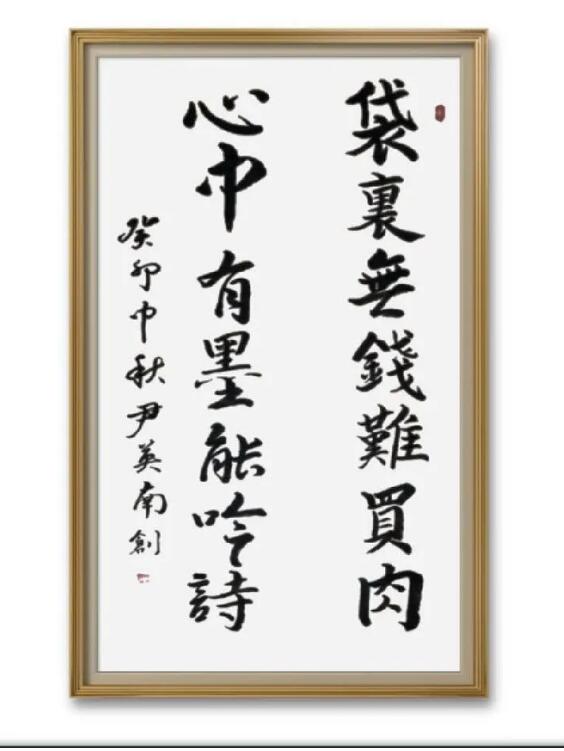 袋裏無錢難買肉
心中有墨能吟詩
癸卯中秋尹英南創